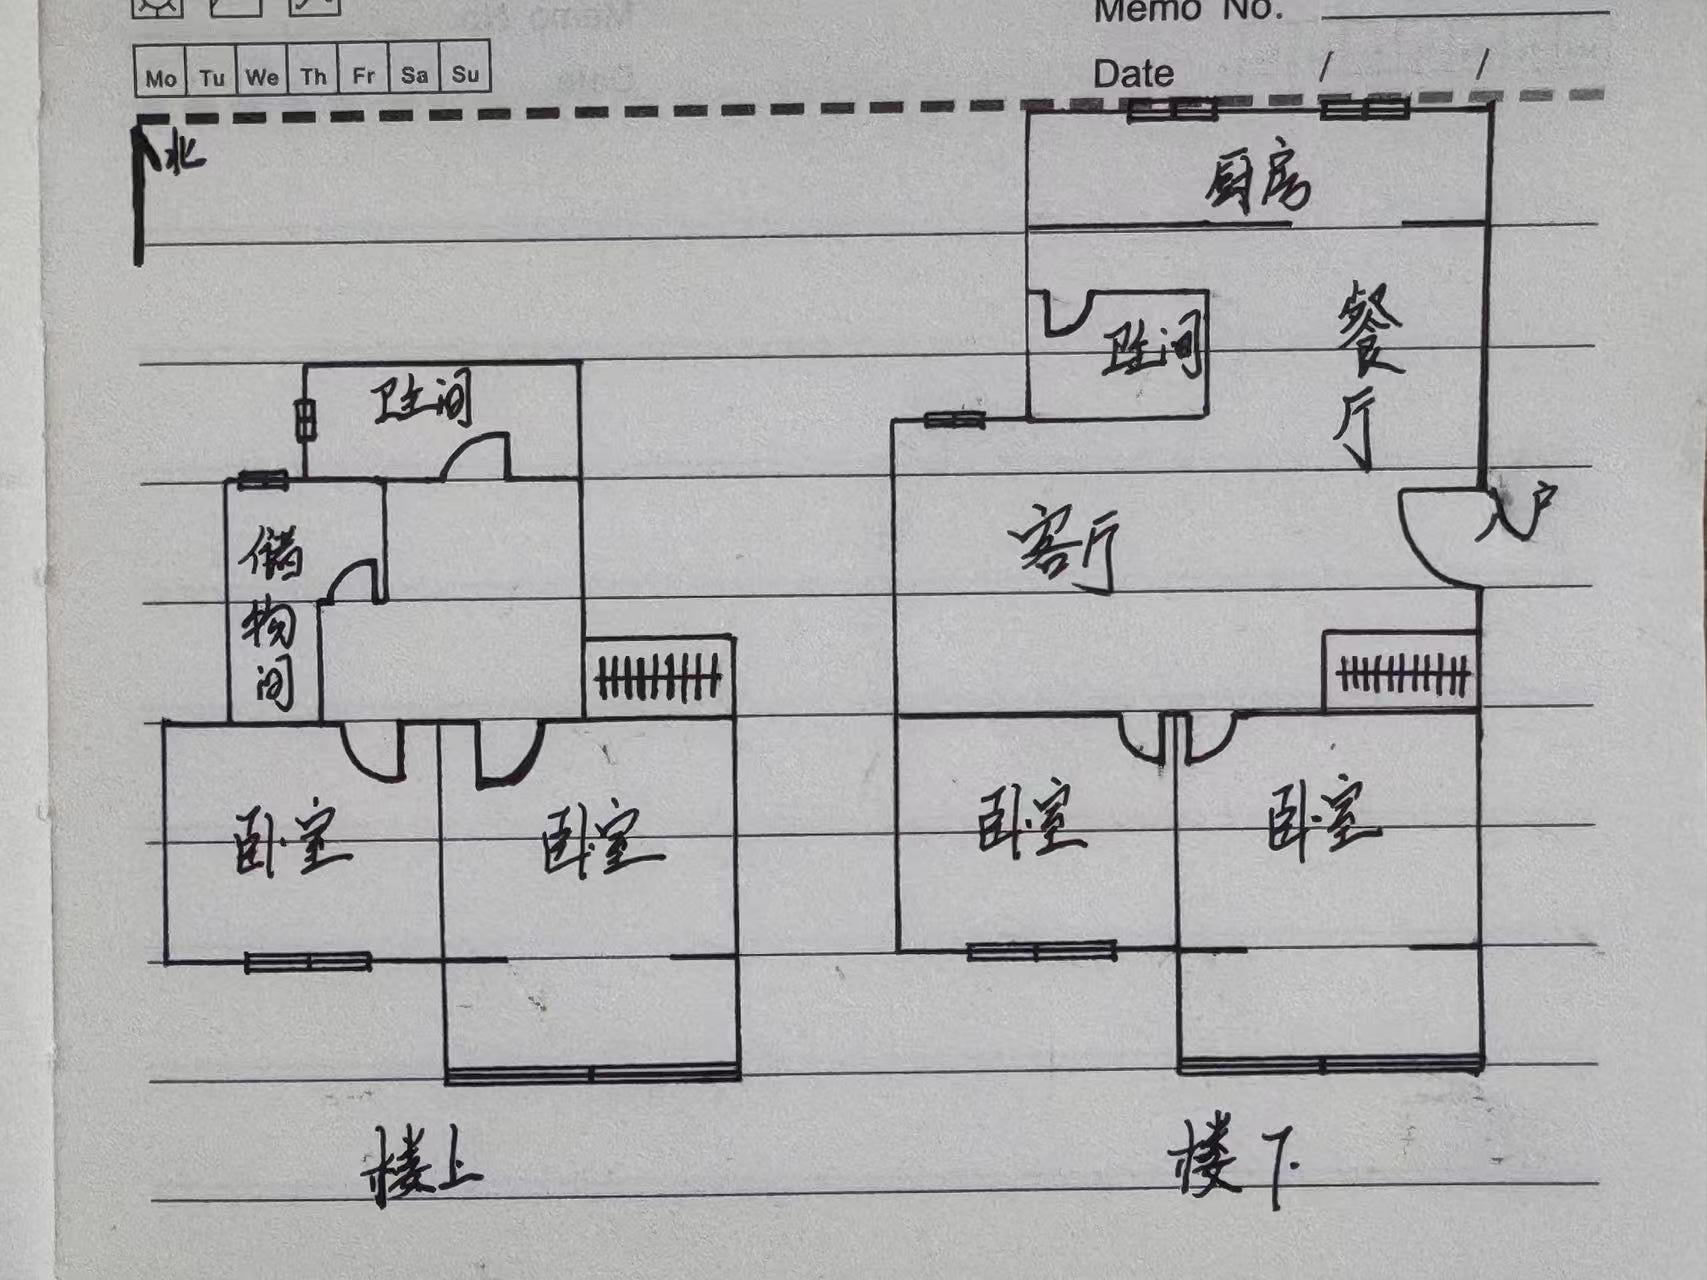 Memo No.
Mo Tu We Th Fr Sa Su
Date / /
北
厨房
卫生间
餐厅
卫生间
储物间
客厅
入户
卧室
卧室
卧室
卧室
楼上
楼下